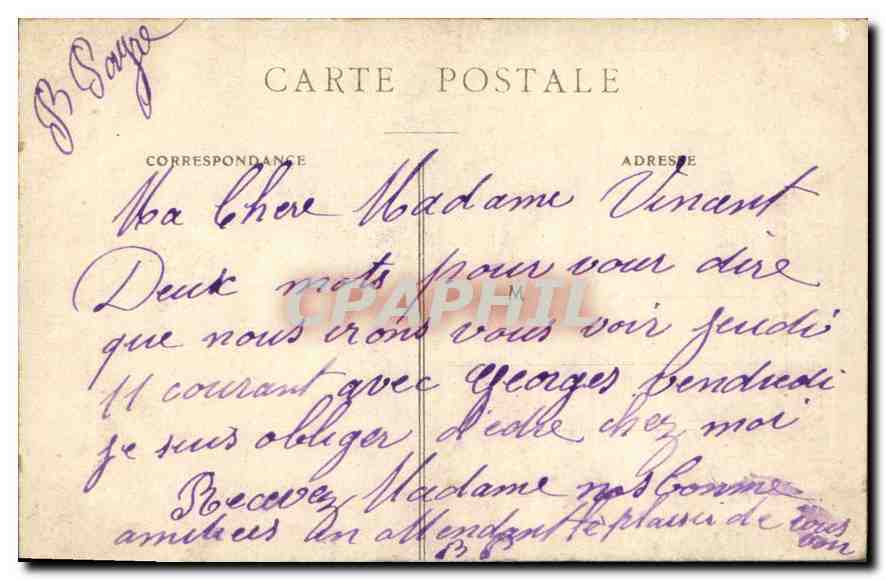 B Sayre
CARTE POSTALE
CORRESPONDANCE
ADRESSE
Ma Chere Madame Vincent
Deux mots pour vour dire
M
CPAPHIL
que nous irons vous voir jeudi
11 courant avec Georges vendredi
je suis obliger d'edre chez moi
Recevez Madame nos bonne
amitiees en attendant le plaisir de vous
voir
B B